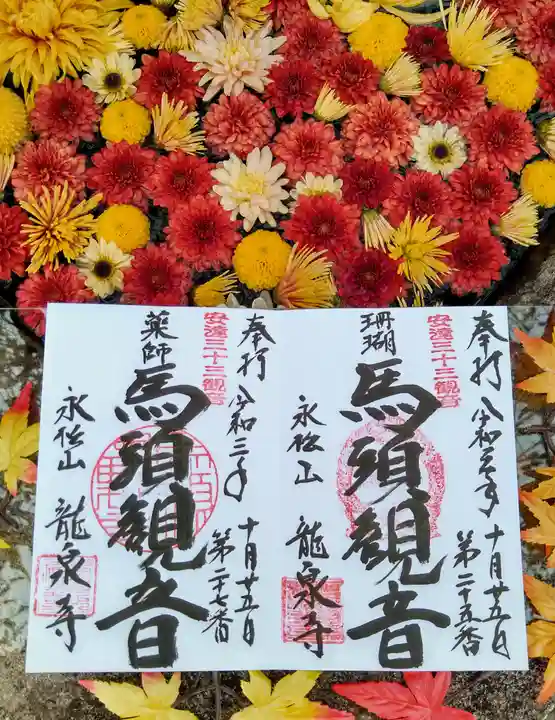 奉打 令和三年 十月廿五日
安達三十三観音
第二十五番
珊瑚
馬頭観音
永松山 龍泉寺
奉打 令和三年 十月廿五日
安達三十三観音
第二十七番
薬師
馬頭観音
永松山 龍泉寺